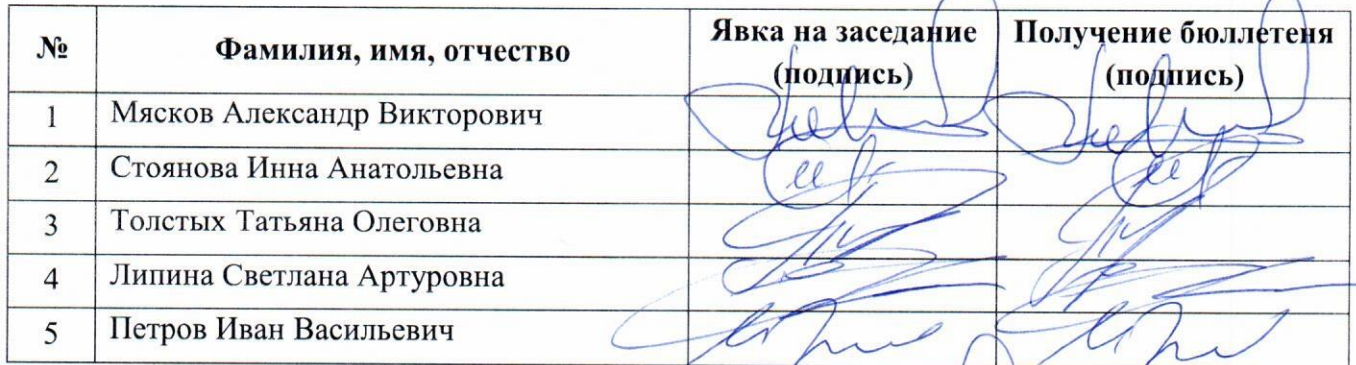 № Фамилия, имя, отчество Явка на заседание (подпись) Получение бюллетеня (подпись)
1 Мясков Александр Викторович
2 Стоянова Инна Анатольевна
3 Толстых Татьяна Олеговна
4 Липина Светлана Артуровна
5 Петров Иван Васильевич